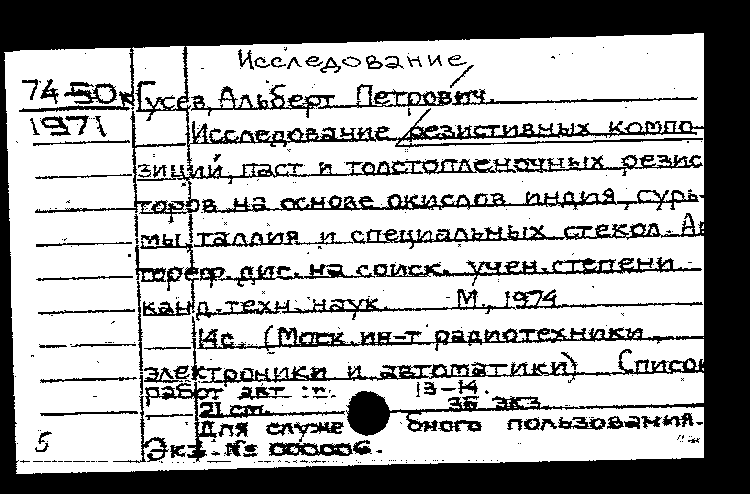 Исследование
74-50к Гусев, Альберт Петрович.
1971
Исследование резистивных компо-
зиций, паст и толстопленочных резис
торов на основе окислов индия, сурь-
мы, таллия и специальных стекол. Ав
тореф. дис. на соиск. учен. степени
канд. техн. наук. М., 1974
14с. (Моск. ин-т радиотехники,
электроники и автоматики) Список
работ авт.: с. 13-14.
21 см. 36 экз.
Для служебного пользования.
Экз. № 000006.
5